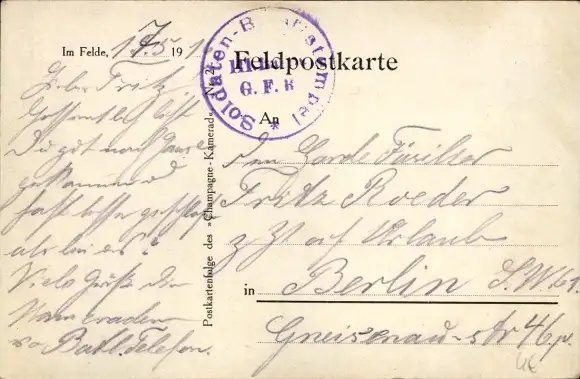 Feldpostkarte
Im Felde, 17.5. 191
Soldaten-Briefstempel
G. F. R
*
Lieber Fritz
Hoffentlich bist
Du gut nach Hause
gekommen u
hast besser geschlafen
als bei
Viele Grüße den
Kameraden
Batl. Telefon.
Postkartenfolge des »Champagne-Kamerad« No. 2
An
den Garde Füsilier
Fritz Roeder
z Zt auf Urlaub
in Berlin S.W 61.
Gneisenau-str 46 p.